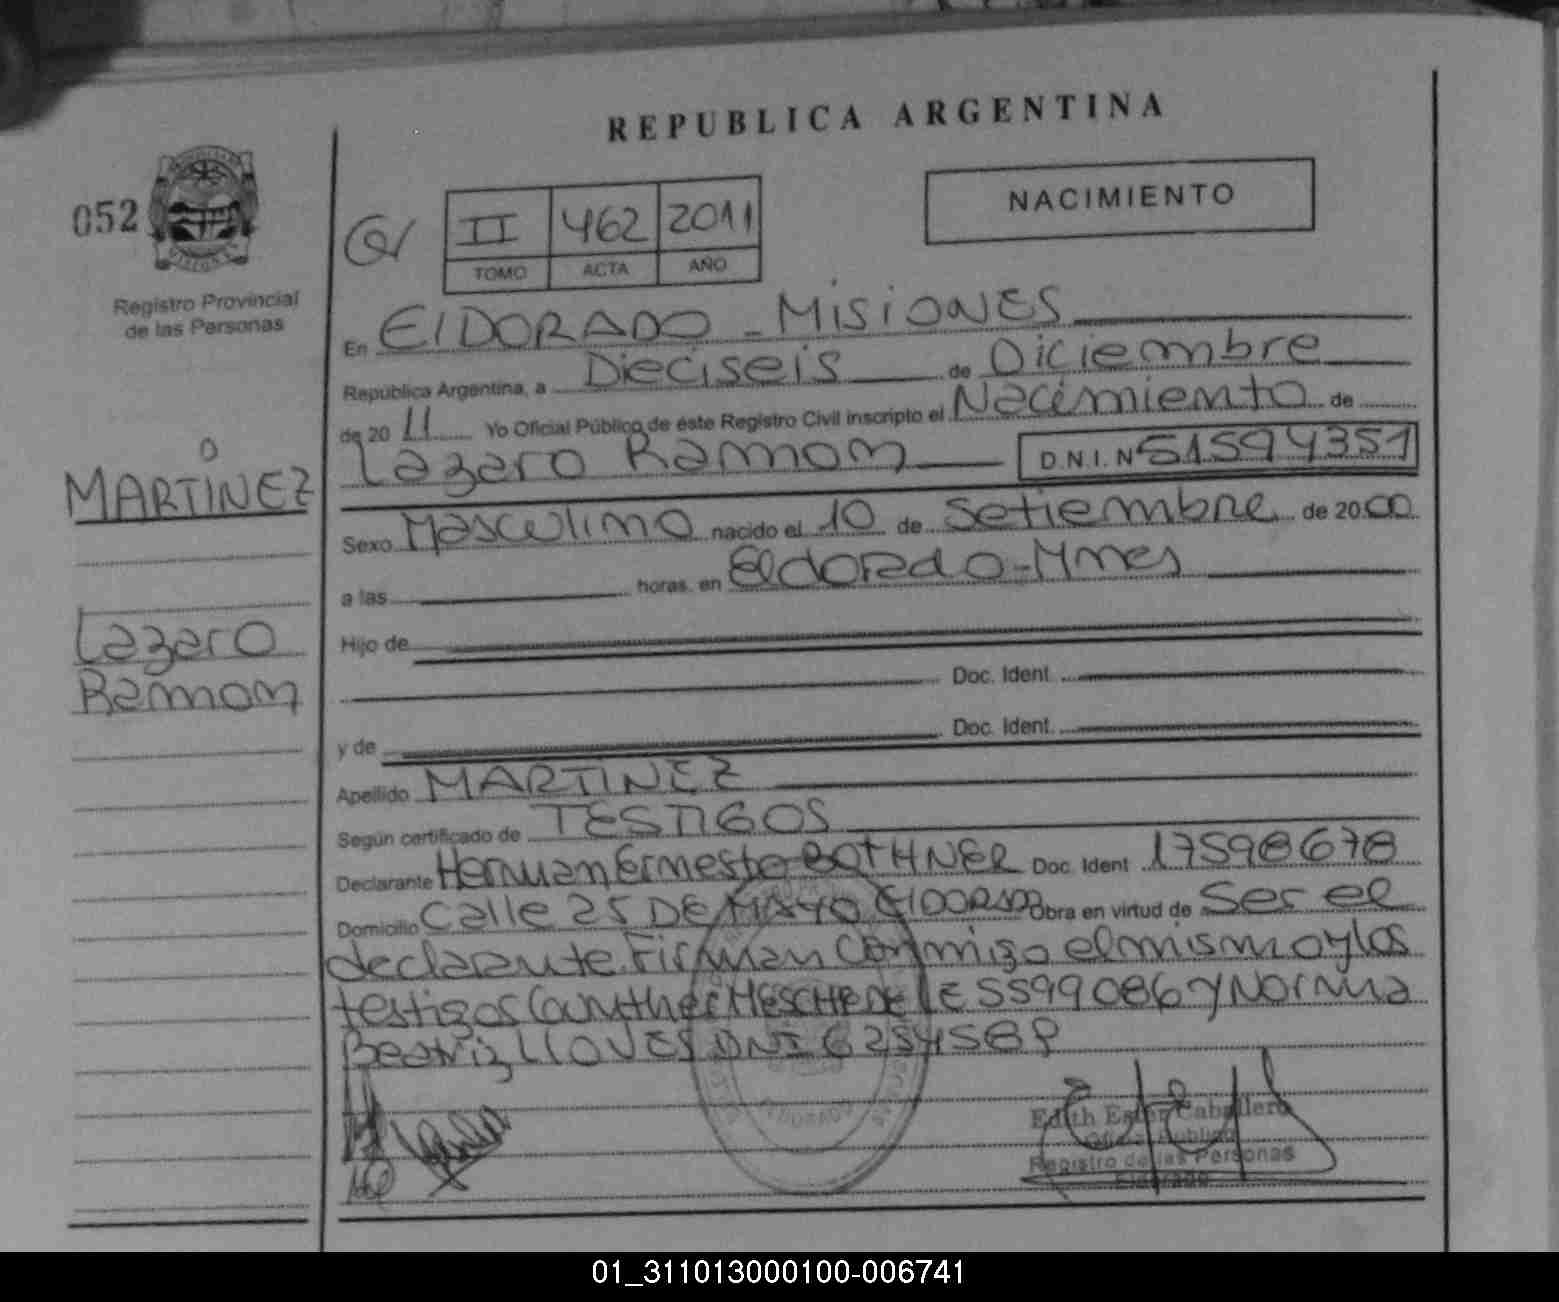 REPUBLICA ARGENTINA
052
Registro Provincial
de las Personas
II 462 2011
TOMO ACTA AÑO
NACIMIENTO
En ElDORADO - MisiONES
República Argentina, a Dieciseis de Diciembre
de 20 11 Yo Oficial Público de éste Registro Civil inscripto el Nacimiento de
Lazaro Ramon D.N.I. N 51594351
MARTINEZ
Lazaro
Ramon
Sexo Masculino nacido el 10 de Setiembre de 20 00
a las horas, en Eldorado - Mnes
Hijo de
Doc. Ident.
y de Doc. Ident.
Apellido MARTINEZ
Según certificado de TESTIGOS
Declarante Hernan Ernesto BOTHNER Doc. Ident 17598678
Domicilio Calle 25 DE MAYO ElDORADO Obra en virtud de Ser el
declarante. Firman Conmigo el mismo y los
testigos Gunther MESCHEDE LE 5599086 y Norma
Beatriz LLOVES DNI
Edith Ester Caballero
Oficial Publico
Registro de las Personas
Eldorado
01_311013000100-006741